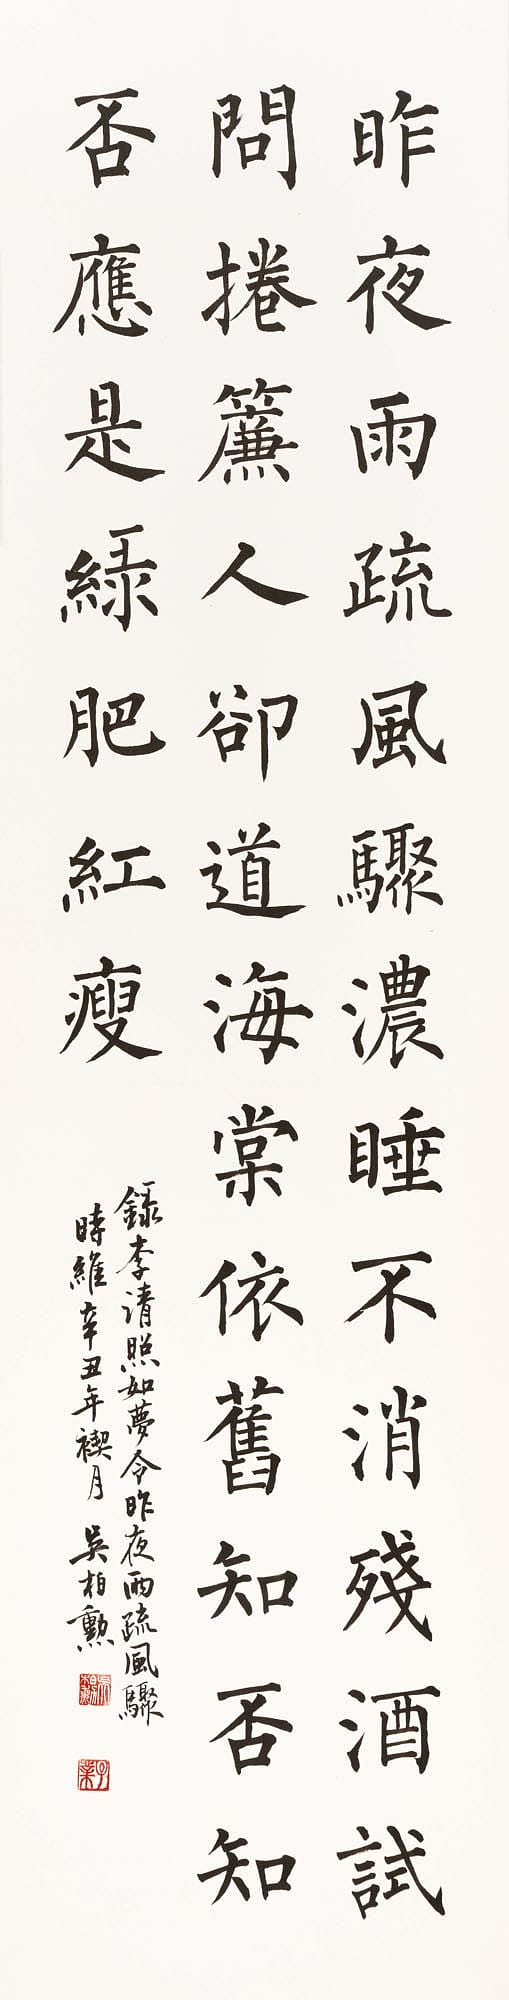 昨夜雨疏風驟濃睡不消殘酒試
問捲簾人卻道海棠依舊知否知
否應是綠肥紅瘦
錄李清照如夢令昨夜雨疏風驟
時維辛丑年禊月 吳柏勲